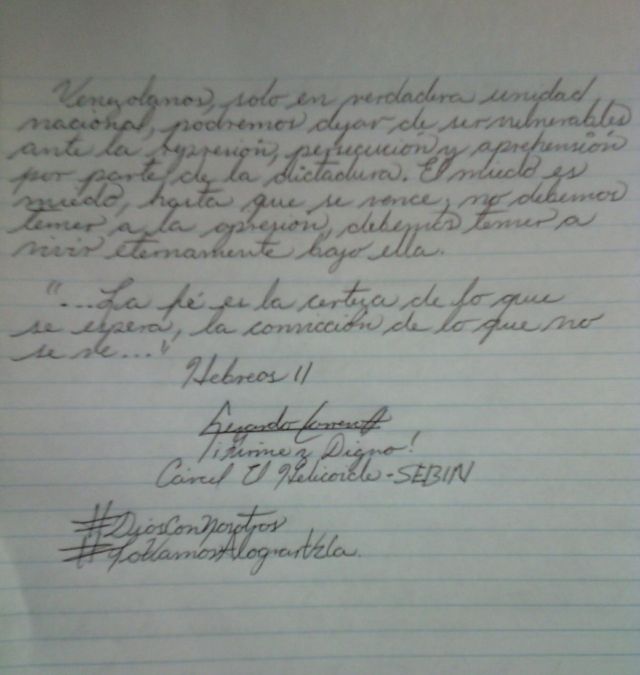 Venezolanos, solo en verdadera unidad
nacional, podremos dejar de ser vulnerables
ante la represión, persecución y aprehensión
por parte de la dictadura. El miedo es
miedo, hasta que se vence, no debemos
temer a la opresión, debemos temer a
vivir eternamente bajo ella.
"...La fé es la certeza de lo que
se espera, la convicción de lo que no
se ve..."
Hebreos 11
Gerardo
Firme y Digno!
Cárcel El Helicoide - SEBIN
#DiosConNosotros
#YoVamosAlograrVzla.